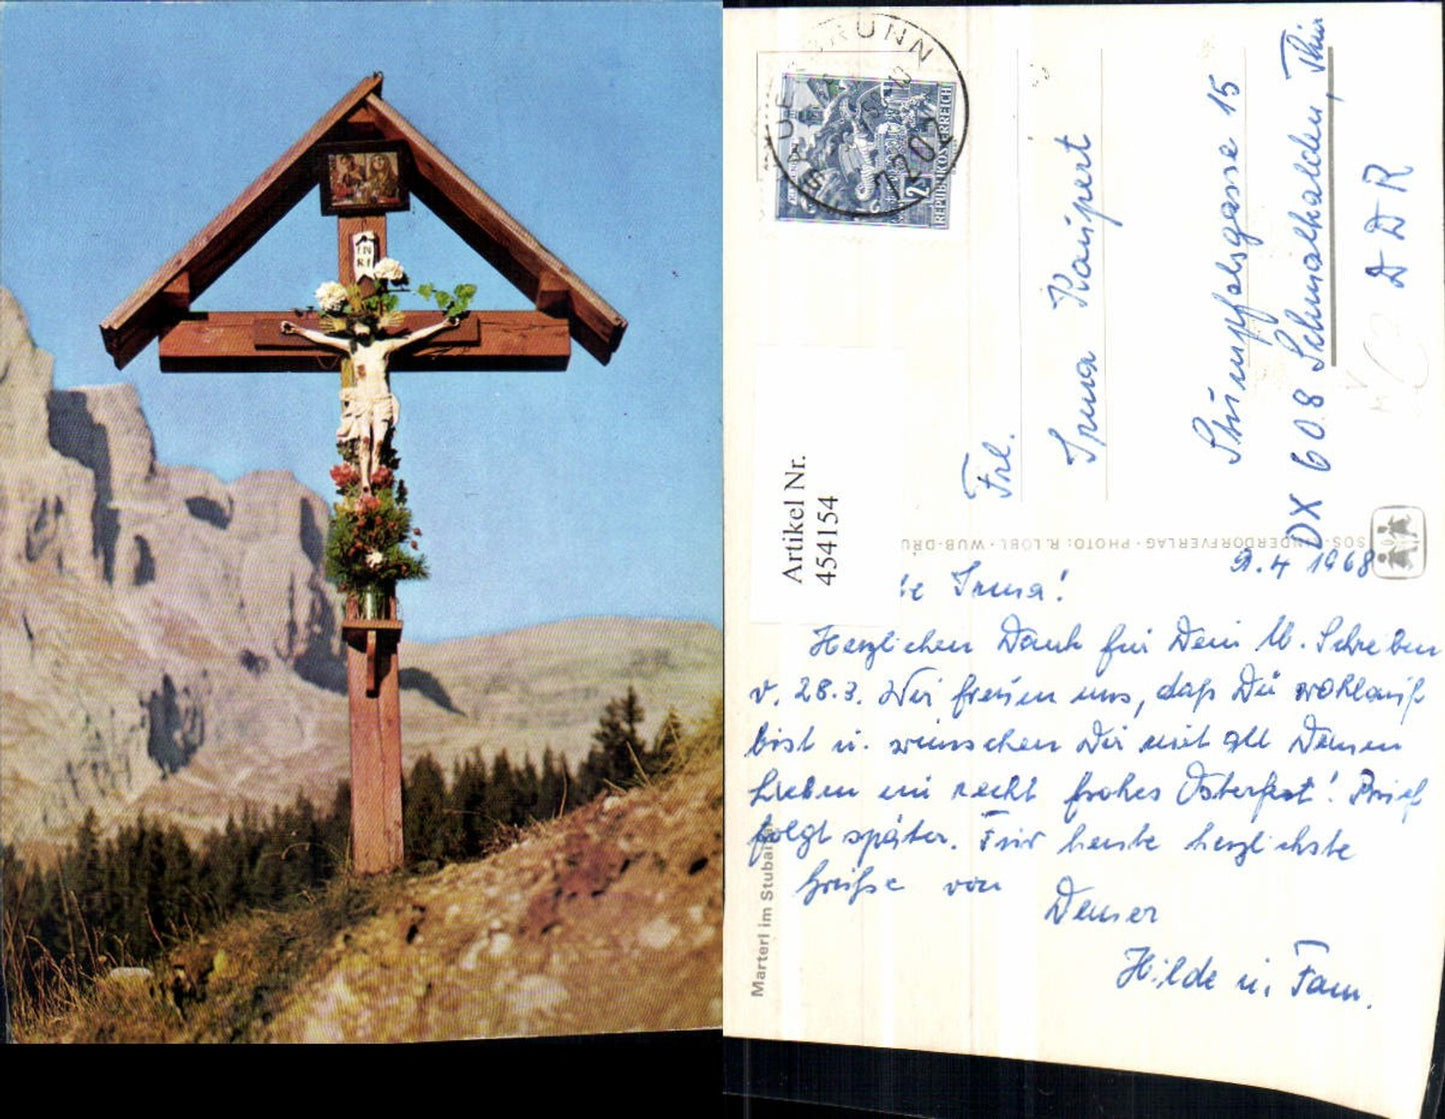 IN
RI
SAUERBRUNN
7202
2
REPUBLIK ÖSTERREICH
Artikel Nr.
454154
Frl.
Irma Kaupert
Stumpfelsgasse 15
DX 608 Schmalkalden, Thür
DDR
PHOTO: R. LÖBL · WUB-DRU
Marterl im Stubai
9.4 1968
Irma!
Herzlichen Dank für Dein lb. Schreiben
v. 28.3. Wir freuen uns, daß Du wohlauf
bist u. wünschen Dir mit all Deinen
Lieben ein recht frohes Osterfest! Brief
folgt später. Für heute herzlichste
Grüße von Deiner
Hilde u. Fam.